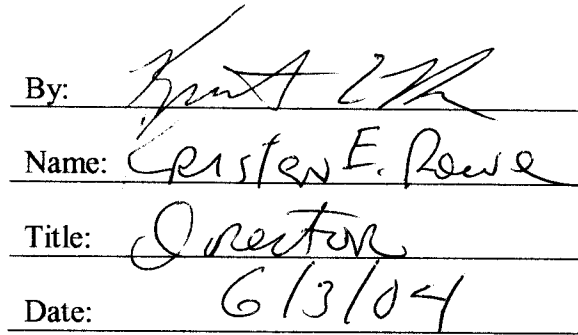 By:
Name: Kristen E. Rowe
Title: Director
Date: 6/3/04